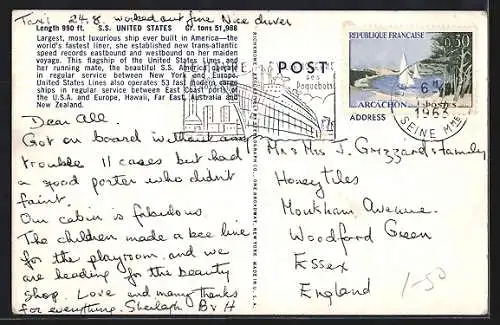 Taxi 24.8. worked out fine Nice driver
Length 990 ft. S.S. UNITED STATES Gr. tons 51,988
Largest, most luxurious ship ever built in America—the
world's fastest liner, she established new trans-atlantic
speed records eastbound and westbound on her maiden
voyage. This flagship of the United States Lines and
her running mate, the beautiful S.S. America operate
in regular service between New York and Europe.
United States Lines also operates 53 fast modern cargo
ships in regular services between East Coast ports of
the U.S.A. and Europe, Hawaii, Far East, Australia and
New Zealand.
Dear All.
Got on board without any
trouble 11 cases but had
a good porter who didn't
faint.
Our cabin is fabulous
The children made a bee line
for the playroom, and we
are heading for the beauty
shop. Love and many thanks
for everything. Sheilagh B & H
POST
ses
Paquebots
REPUBLIQUE FRANÇAISE
0,50
ARCACHON
POSTES
1963
SEINE Mme
ADDRESS
Mr & Mrs J. Grizzard & family
Honeytiles
Monkham Avenue.
Woodford Green
Essex
England
1-50